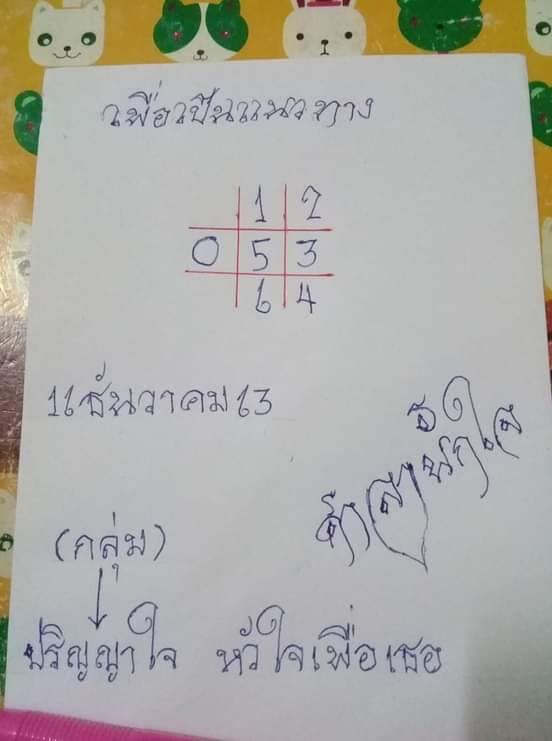 เพื่อเป็นแนวทาง
1 2
0 5 3
6 4
16 ธันวาคม 63
(กลุ่ม)
ปริญญาใจ หัวใจเพื่อเธอ